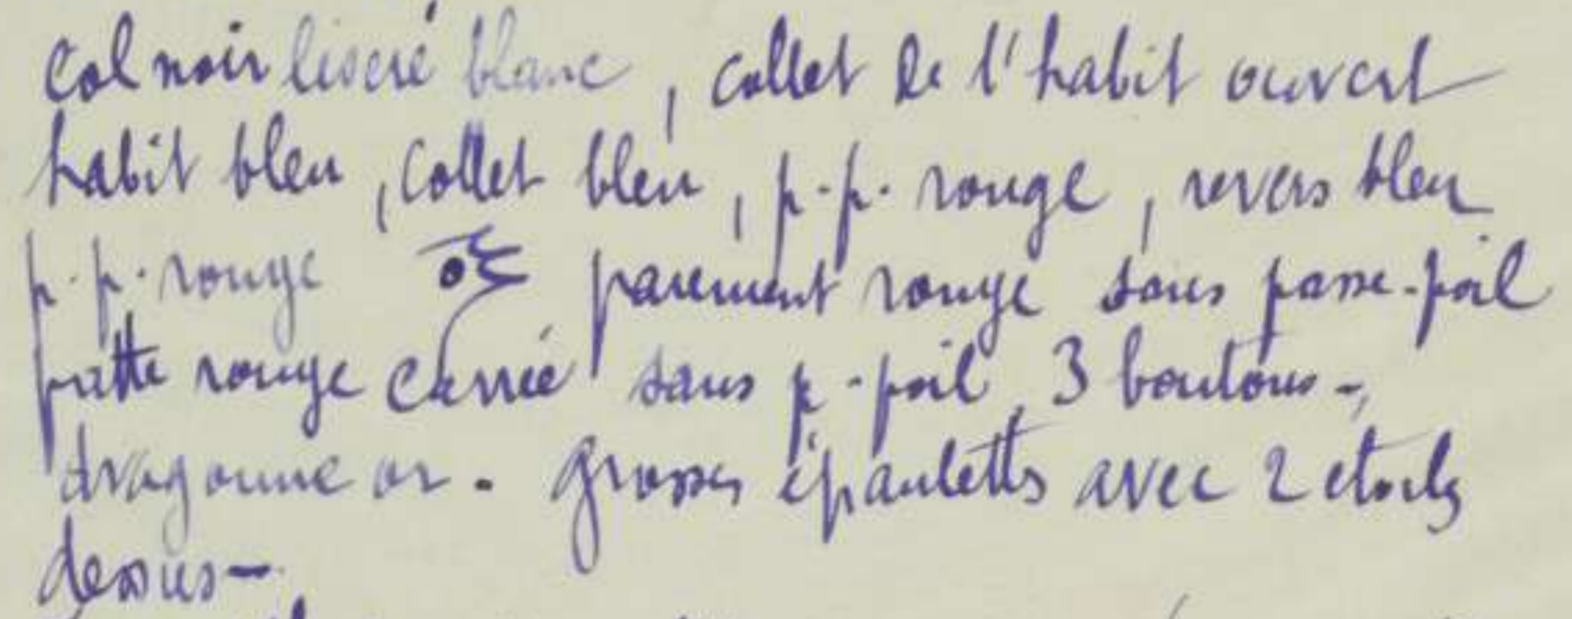 col noir liseré blanc, collet de l'habit ouvert
habit bleu, collet bleu, p.p. rouge, revers bleu
p.p. rouge parement rouge sans passe-poil
patte rouge carrée sans p-poil, 3 boutons -,
dragonne or. grosses épaulettes avec 2 etoiles
dessus -